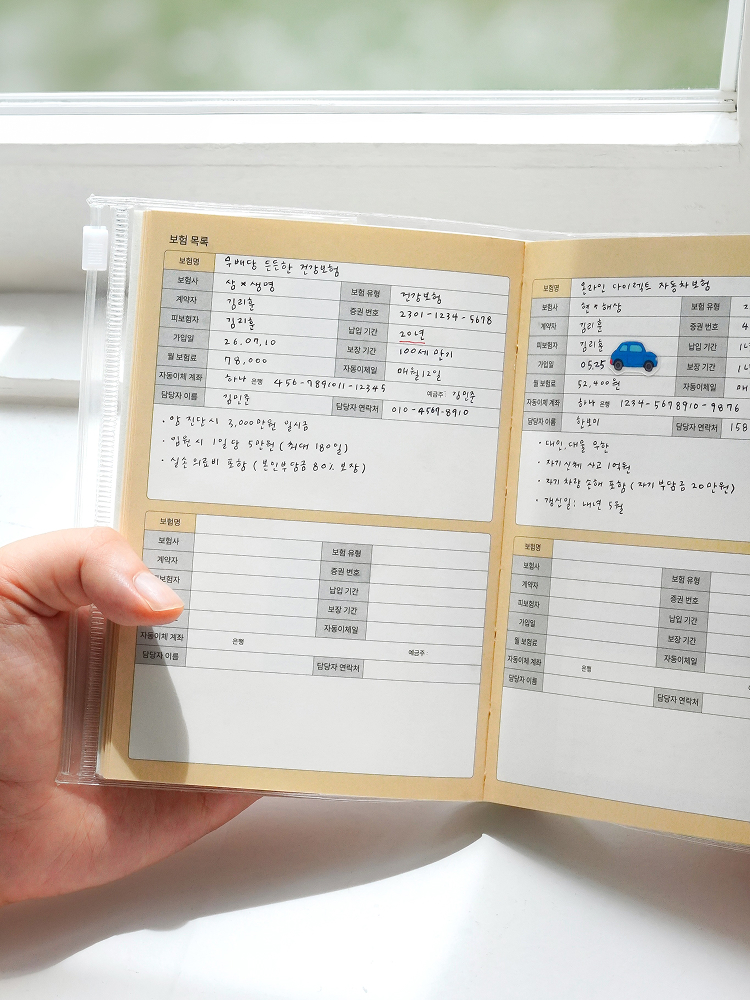 보험 목록
보험명 무배당 든든한 건강보험
보험사 삼*생명 보험 유형 건강보험
계약자 김리훈 증권 번호 2301-1234-5678
피보험자 김리훈 납입 기간 20년
가입일 26.07.10 보장 기간 100세 만기
월 보험료 78,000 자동이체일 매월 12일
자동이체 계좌 하나 은행 456-7891011-12345 예금주: 김민준
담당자 이름 김민준 담당자 연락처 010-4567-8910
· 암 진단시 3,000만원 일시금
· 입원시 1일당 5만원 (최대 180일)
· 실손 의료비 포함 (본인부담금 80% 보장)
보험명
보험사 보험 유형
계약자 증권 번호
피보험자 납입 기간
보장 기간
자동이체일
자동이체 계좌 은행 예금주
담당자 이름 담당자 연락처
보험명 온라인 다이렉트 자동차보험
보험사 현*해상 보험 유형
계약자 김리훈 증권 번호 4
피보험자 김리훈 납입 기간 1년
가입일 05.25 보장 기간
월 보험료 52,400원 자동이체일
자동이체 계좌 하나 은행 1234-5678910-9876
담당자 이름 한보미 담당자 연락처 158
· 대인, 대물 무한
· 자기신체 사고 1억원
· 자기 차량 손해 포함 (자기 부담금 20만원)
· 갱신일: 내년 5월
보험명
보험사 보험 유형
계약자 증권 번호
피보험자 납입 기간
가입일 보장 기간
월 보험료 자동이체일
자동이체 계좌 은행
담당자 이름 담당자 연락처